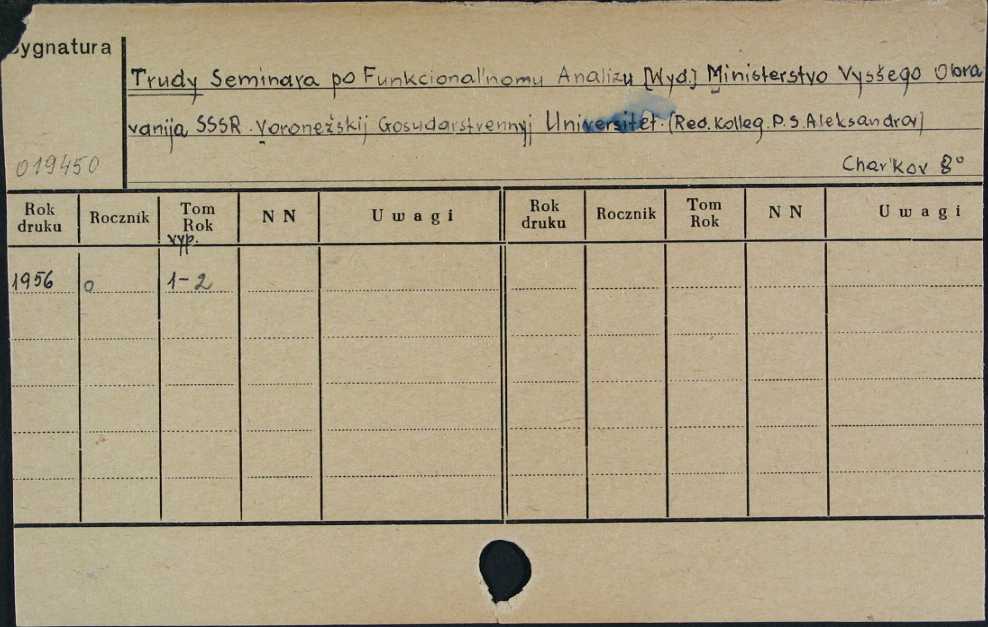 Sygnatura
Trudy Seminara po Funkcional'nomu Analizu [Wyd.] Ministerstvo Vysšego Obra
vanija SSSR. Voronežskij Gosudarstvennyj Universitet. (Red. Kolleg. P.S. Aleksandrov)
019450
Char'kov 8°
Rok druku Rocznik Tom Rok N N Uwagi Rok druku Rocznik Tom Rok N N Uwagi
vyp.
1956 0 1-2